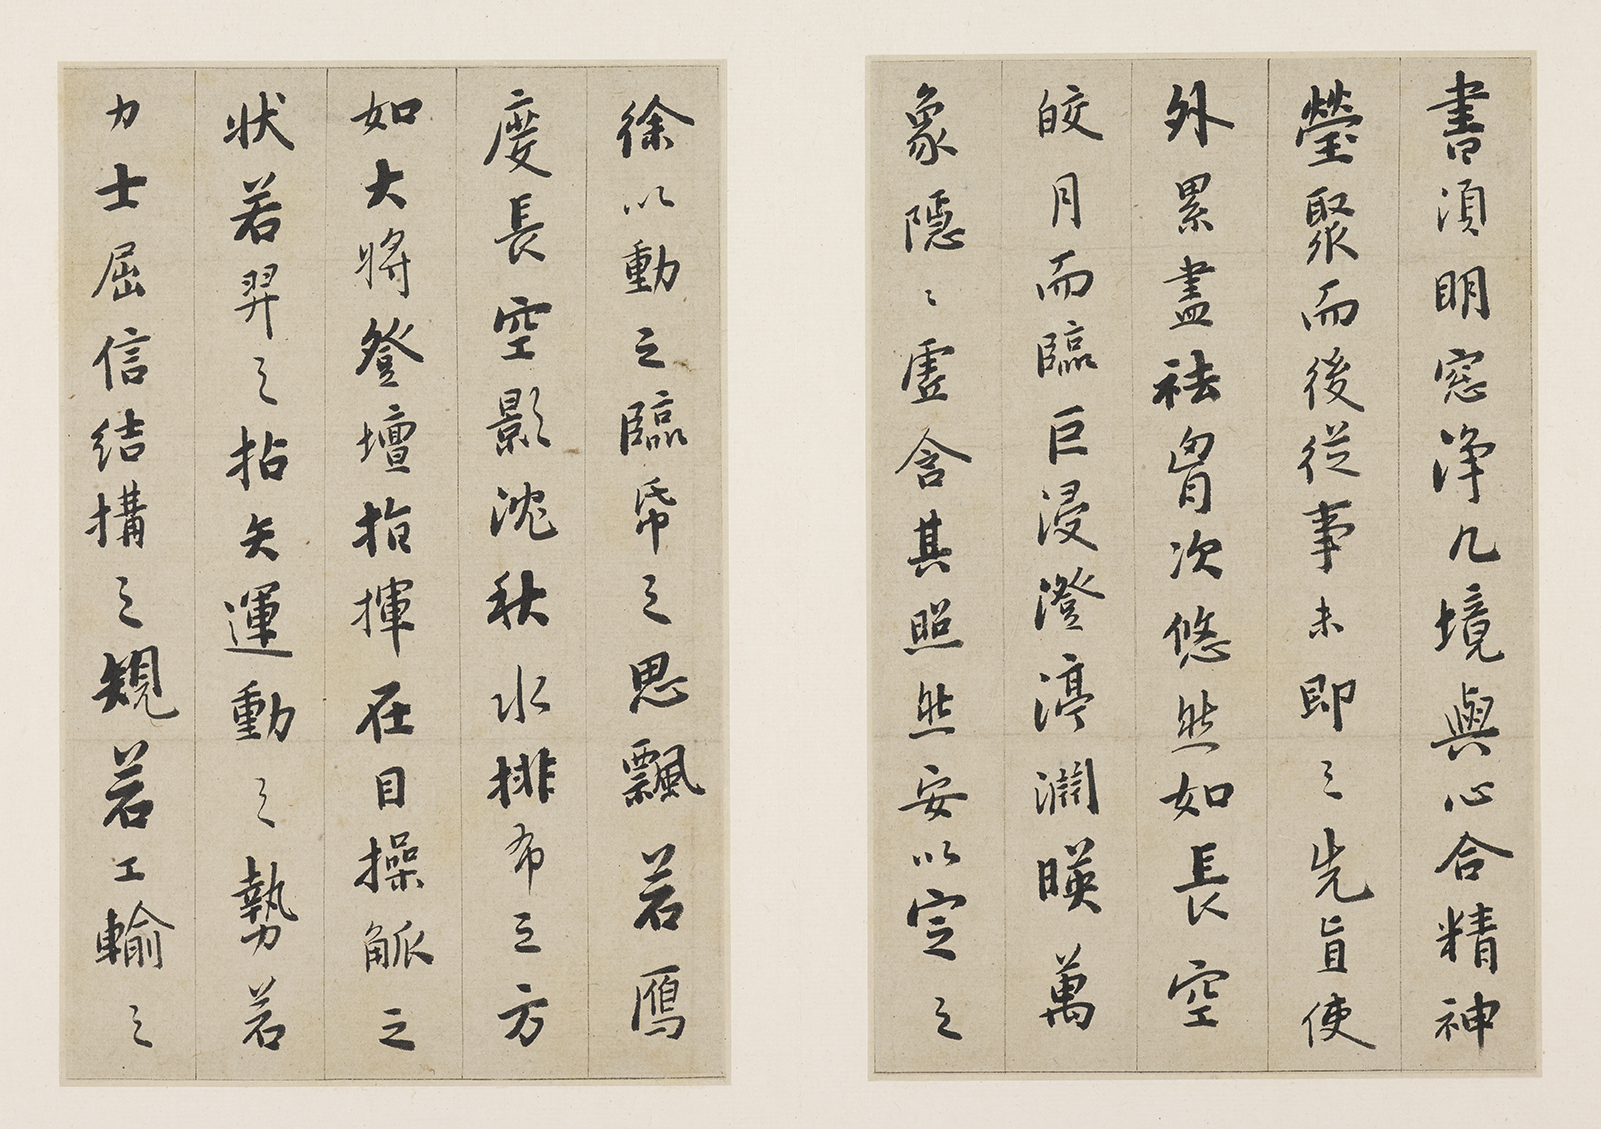 書須明窓浄几境與心合精神
瑩聚而後從事未即之先旨使
外累盡祛胷次悠然如長空
皎月而臨巨浸澄渟淵暎萬
象隱〻虛含其照然安以定之
徐以動之臨帋之思飄若鴈
度長空影沈秋水排布之方
如大將登壇指揮在目操觚之
狀若羿之拈矢運動之勢若
力士屈信結搆之規若工輸之